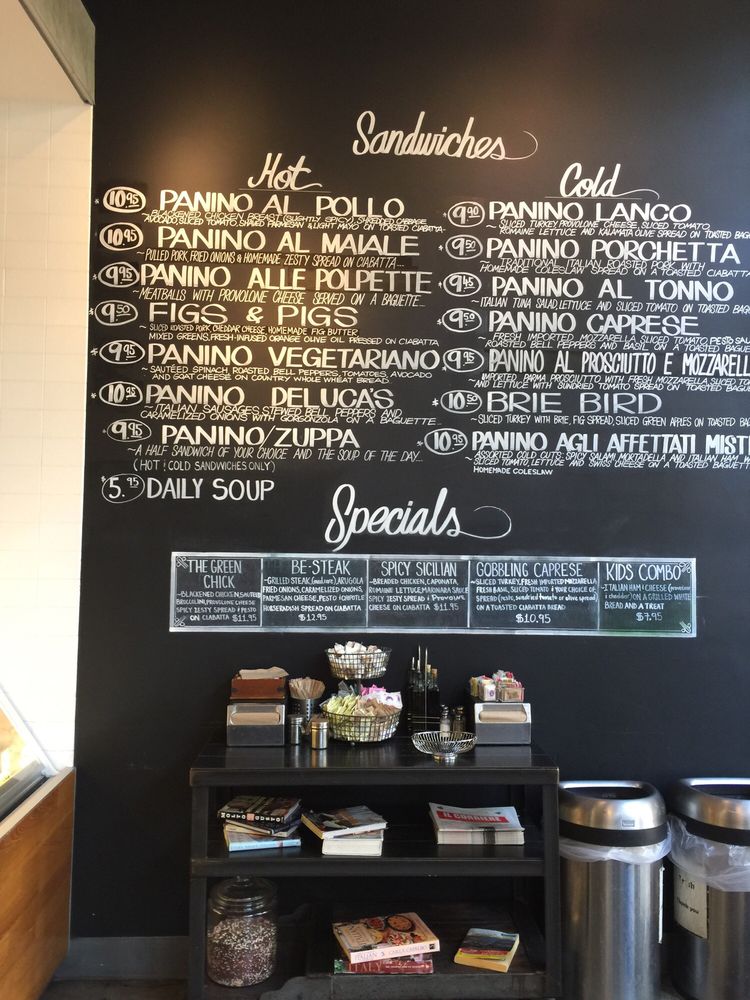 Sandwiches
Hot
10.95 PANINO AL POLLO
~BLACKENED CHICKEN BREAST (SLIGHTLY SPICY) SHREDDED CABBAGE
AVOCADO, SLICED TOMATO, SHAVED PARMESAN & LIGHT MAYO ON TOASTED CIABATTA~
10.95 PANINO AL MAIALE
~PULLED PORK, FRIED ONIONS & HOMEMADE ZESTY SPREAD ON CIABATTA...
9.95 PANINO ALLE POLPETTE
~MEATBALLS WITH PROVOLONE CHEESE SERVED ON A BAGUETTE...
9.50 FIGS & PIGS
~SLICED ROASTED PORK, CHEDDAR CHEESE HOMEMADE FIG BUTTER
MIXED GREENS, FRESH-INFUSED ORANGE OLIVE OIL PRESSED ON CIABATTA
9.95 PANINO VEGETARIANO
~SAUTÉED SPINACH, ROASTED BELL PEPPERS, TOMATOES, AVOCADO
AND GOAT CHEESE ON COUNTRY WHOLE WHEAT BREAD
10.95 PANINO DELUCA'S
~ITALIAN SAUSAGES, STEWED BELL PEPPERS AND
CARAMELIZED ONIONS WITH GORGONZOLA ON A BAGUETTE...
9.95 PANINO/ZUPPA
~A HALF SANDWICH OF YOUR CHOICE AND THE SOUP OF THE DAY...
(HOT & COLD SANDWICHES ONLY)
$5.95 DAILY SOUP
Cold
9.90 PANINO LANCO
~SLICED TURKEY, PROVOLONE CHEESE, SLICED TOMATO
ROMAINE LETTUCE AND KALAMATA OLIVE SPREAD ON TOASTED BAG
9.50 PANINO PORCHETTA
~TRADITIONAL ITALIAN ROASTED PORK WITH
HOMEMADE COLESLAW SPREAD ON A TOASTED CIABATTA
9.45 PANINO AL TONNO
~ITALIAN TUNA SALAD, LETTUCE AND SLICED TOMATO ON TOASTED BAG
9.50 PANINO CAPRESE
~FRESH IMPORTED MOZZARELLA, SLICED TOMATO, PESTO SAU
ROASTED BELL PEPPERS AND BASIL ON A TOASTED BAGUE
9.95 PANINO AL PROSCIUTTO E MOZZARELL
~IMPORTED PARMA PROSCIUTTO WITH FRESH MOZZARELLA SLICED TO
AND LETTUCE WITH SUNDRIED TOMATO SPREAD ON TOASTED BAGUE
10.50 BRIE BIRD
~SLICED TURKEY WITH BRIE, FIG SPREAD, SLICED GREEN APPLES ON TOASTED BA
10.95 PANINO AGLI AFFETTATI MIST
~ASSORTED COLD CUTS: SPICY SALAMI, MORTADELLA AND ITALIAN HAM W
SLICED TOMATO, LETTUCE AND SWISS CHEESE ON A TOASTED BAGUETTE
HOMEMADE COLESLAW
Specials
THE GREEN
CHICK
~BLACKENED CHICKEN, SAUTEED
BROCCOLINI, PROVOLONE CHEESE
SPICY ZESTY SPREAD & PESTO
ON CIABATTA $11.95
BE-STEAK
~GRILLED STEAK (med rare), ARUGOLA
FRIED ONIONS, CARAMELIZED ONIONS,
PARMESAN CHEESE, PESTO & CHIPOTLE
HORSERADISH SPREAD ON CIABATTA
$12.95
SPICY SICILIAN
~BREADED CHICKEN, CAPONATA,
ROMAINE LETTUCE, MARINARA SAUCE
SPICY ZESTY SPREAD & PROVOLONE
CHEESE ON CIABATTA $11.95
GOBBLING CAPRESE
~SLICED TURKEY, FRESH IMPORTED MOZZARELLA
FRESH BASIL, SLICED TOMATO & YOUR CHOICE OF
SPREAD (pesto, sundried tomato or olive spread)
ON A TOASTED CIABATTA BREAD
$10.95
KIDS COMBO
~ITALIAN HAM & CHEESE (provolone
& cheddar) ON A GRILLED WHITE
BREAD AND A TREAT
$7.95
MOLTO
GUSTO
IL CORRIERE
ITALIAN
ITALY
Thank you